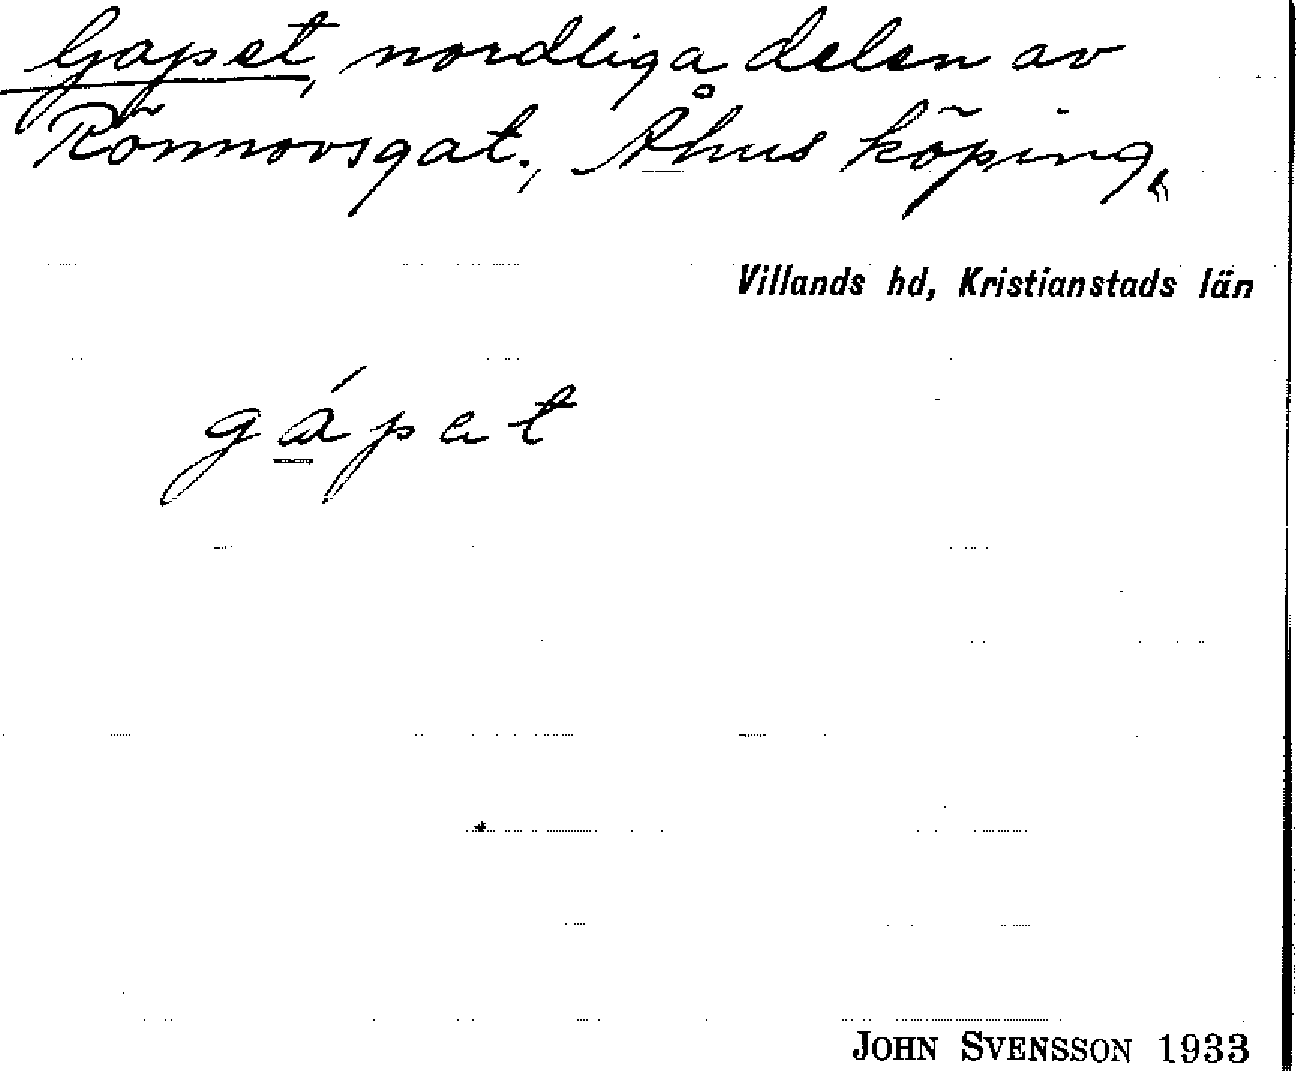 Gapet, nordliga delen av
Rönnovsgat., Åhus köping,
Villands hd, Kristianstads län
gápet
JOHN SVENSSON 1933